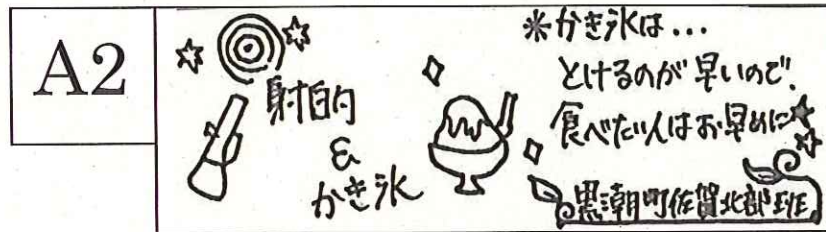 A2
射的
&
かき氷
*かき氷は...
とけるのが早いので、
食べたい人はお早めに
黒潮町佐賀北部班